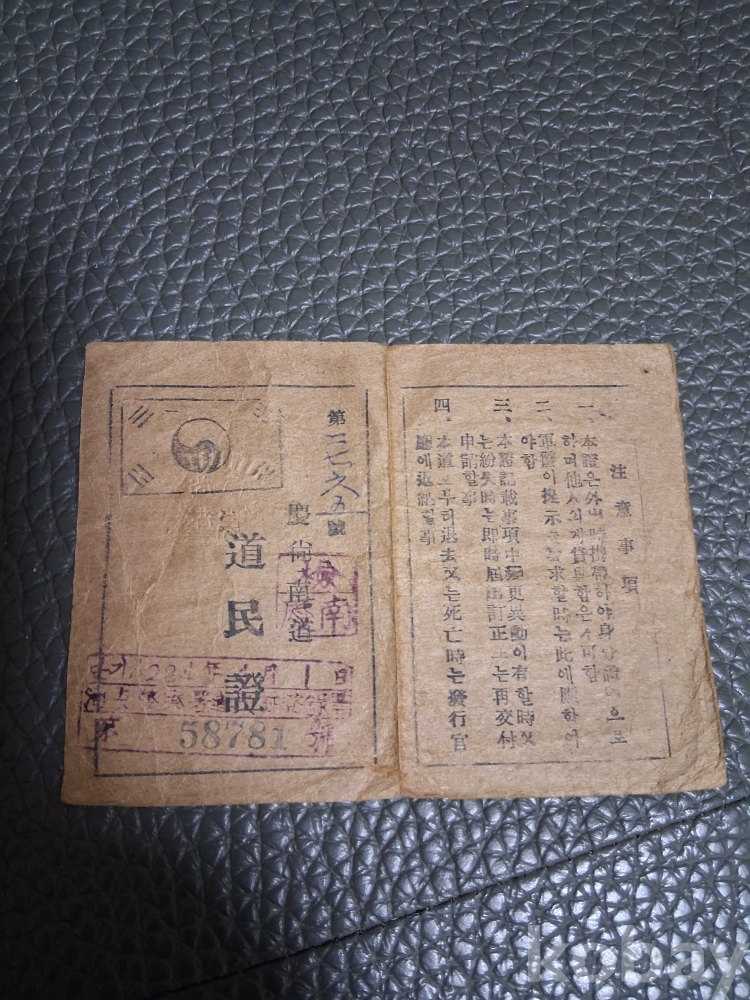 注意事項
一、本證은外出時携帶하야身分證明으로
하며他人의게貸與함은不許함
二、軍警이提示를要求할時는此에應하여
야함
三、本證記載事項中變更異動이有할時又
는紛失時는即時屆出訂正又는再交付
申請할事
四、本道로부터退去又는死亡時는發行官
廳에返納할事
第一七六五號
慶尙南道
道民證
58781
kobay